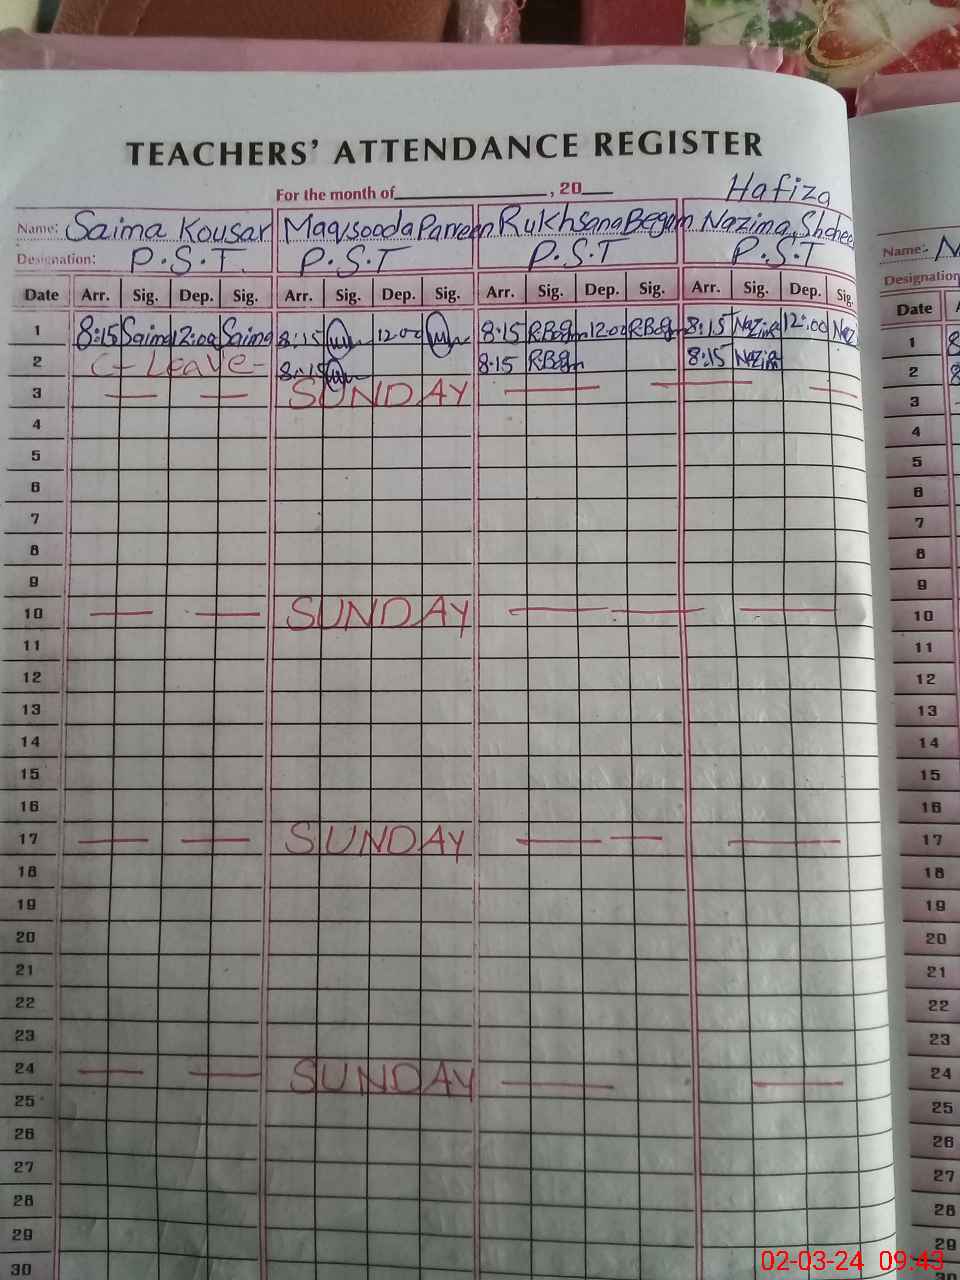 TEACHERS' ATTENDANCE REGISTER
For the month of ________, 20__
Hafiza
Name: Saima Kousar Maqsooda Parveen Rukhsana Begam Nazima Shahee
Designation: P.S.T. P.S.T P.S.T P.S.T
Date Arr. Sig. Dep. Sig. Arr. Sig. Dep. Sig. Arr. Sig. Dep. Sig. Arr. Sig. Dep. Sig.
1 8:15 Saima 12:00 Saima 8:15 12:00 8:15 RBegm 12:00 RBegm 8:15 Nazima 12:00 Nazi
2 C-Leave- 8:15 8:15 RBegm 8:15 Nazima
3 SUNDAY
4
5
6
7
8
9
10 SUNDAY
11
12
13
14
15
16
17 SUNDAY
18
19
20
21
22
23
24 SUNDAY
25
26
27
28
29
30
Name:- N
Designation
Date A
1 8
2 8
3
4
5
6
7
8
9
10
11
12
13
14
15
16
17
18
19
20
21
22
23
24
25
26
27
28
29
02-03-24 09:43